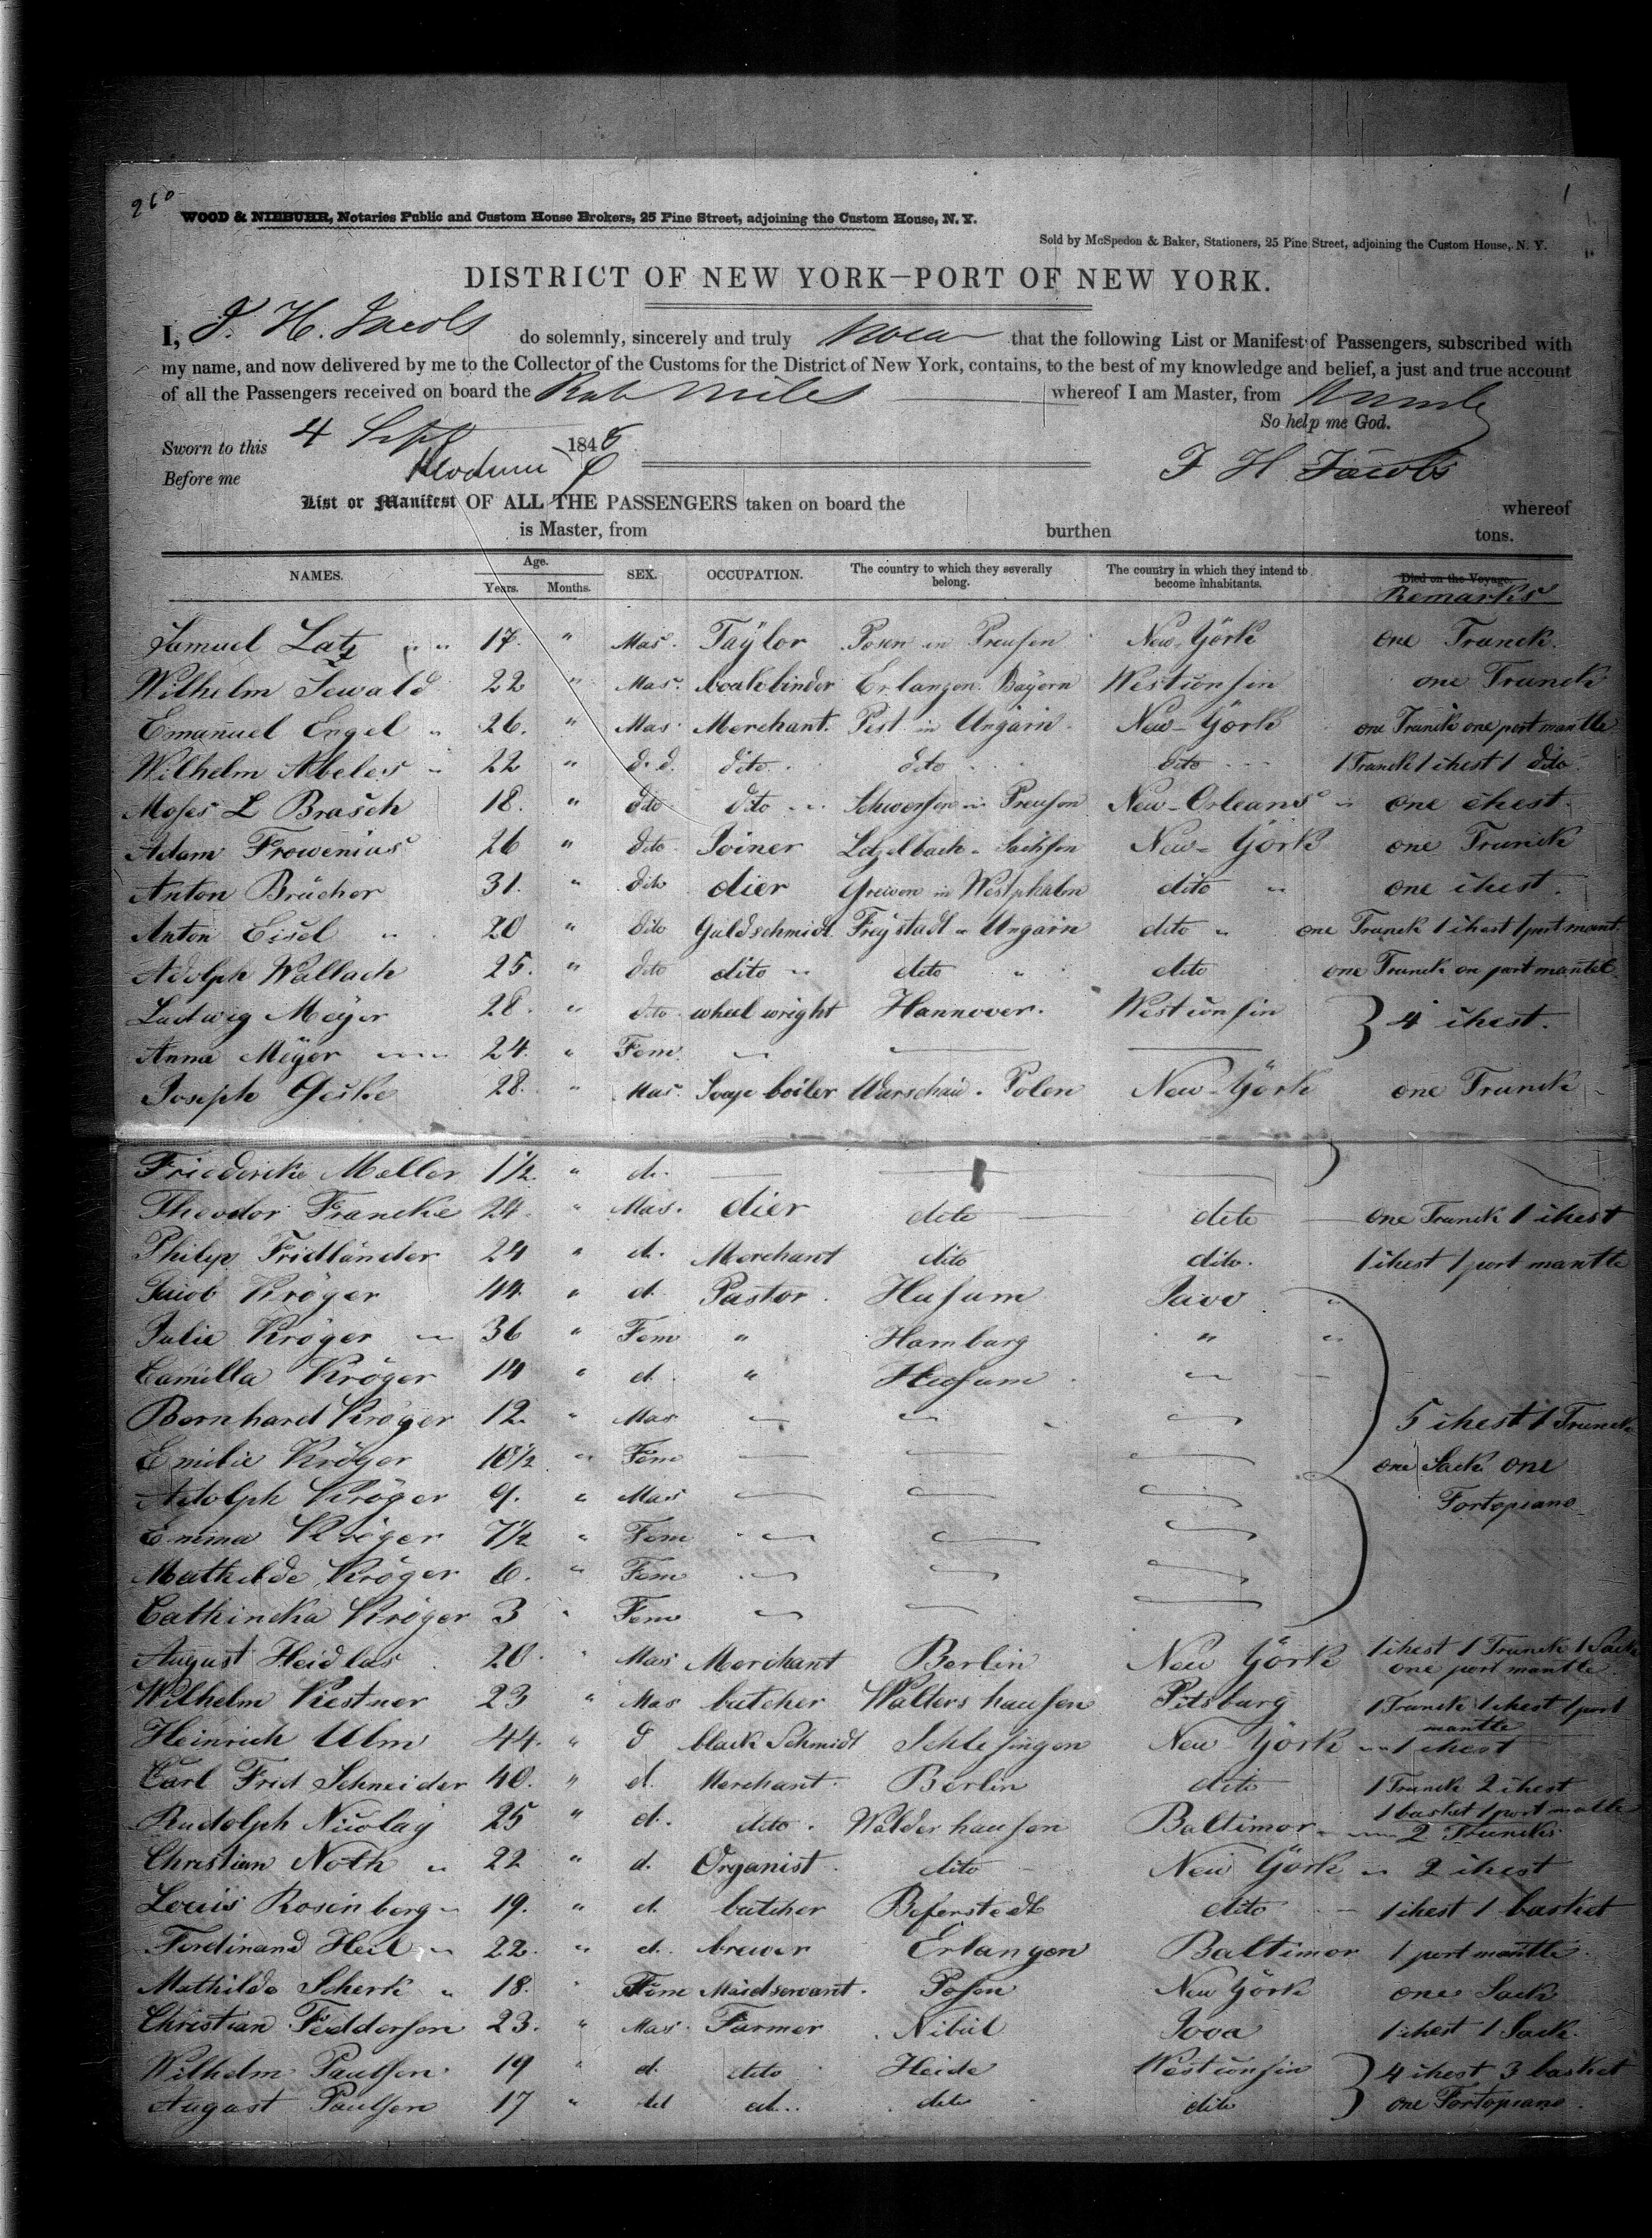 260
1
WOOD & NIEBUHR, Notaries Public and Custom House Brokers, 25 Pine Street, adjoining the Custom House, N. Y.
Sold by McSpedon & Baker, Stationers, 25 Pine Street, adjoining the Custom House, N. Y.
DISTRICT OF NEW YORK—PORT OF NEW YORK.
I, F. H. Jacobs do solemnly, sincerely and truly that the following List or Manifest of Passengers, subscribed with
my name, and now delivered by me to the Collector of the Customs for the District of New York, contains, to the best of my knowledge and belief, a just and true account
of all the Passengers received on board the Rob Miles whereof I am Master, from
So help me God.
Sworn to this 4 Sept 1848
Before me F H Jacobs
List or Manifest OF ALL THE PASSENGERS taken on board the whereof
is Master, from burthen tons.
NAMES. Age. Years. Months. SEX. OCCUPATION. The country to which they severally belong. The country in which they intend to become inhabitants. Died on the Voyage. Remarks
Samuel Latz " " 17. " Mas. Taylor Posen in Preusen New-York one Trunck.
Wilhelm Sewald 22 " Mas. bookbinder Erlangen Bayern Westconsin one Trunck
Emanuel Engel " 26. " Mas. Merchant. Pest in Ungarn. New-York one Trunck one portmantle
Wilhelm Abeles " 22 " d. d. dito. dito dito 1 Trunck 1 chest 1 dito.
Moses L Brasch 18. " dito dito Schwersen in Preusen New-Orleans " one chest.
Adam Frowenius 26 " dito Joiner Letzelbach " Sachsen New-York one Trunck
Anton Brücher 31. " dito dier Greven in Westphalen dito " one chest.
Anton Eisel " 20 " dito Guldschmidt. Freystadt " Ungarn dito " one Trunck 1 chest 1 portmant.
Adolph Wallach 25. " dito dito " dito " dito one Trunck on portmantel
Ludwig Meyer 28. " dito. wheelwright Hannover. Westconsin } 4 chest.
Anna Meyer 24. " Fem.
Joseph Geske 28. " Mas. Soap boiler Warschau. Polen New-York one Trunck
Friedericke Moller 1½ " d.
Theodor Francke 24. " Mas. dier dito dito one Trunck 1 chest
Philip Fridländer 24 " d. Merchant dito dito. 1 chest 1 port mantle
Jacob Kröger 44. " d. Pastor. Husum "
Julie Kröger 36 " Fem " Hamburg " "
Camilla Kröger 14 " d " Husum.
Bernhard Kröger 12. " Mas 5 chest 1 Trunck
Emilie Kröger 10½ " Fem one Sack one
Adolph Kröger 9. " Mas Fortopiano
Emma Kröger 7½ " Fem
Mathilde Kröger 6. " Fem
Cathincka Kröger 3 " Fem
August Heidlas 20. " Mas Merchant Berlin New York 1 chest 1 Trunck 1 Sack
one port mantle.
Wilhelm Kestner 23 " Mas butcher Waltershausen Pitsburg 1 Trunck 1 chest 1 port
mantle
Heinrich Ulm 44. " d black Schmidt Schlesingen New York 1 chest
Carl Frid Schneider 40. " d. Merchant. Berlin dito 1 Trunck 2 chest
1 basket 1 port matle
Rudolph Nicolay 25 " d. dito. Walderhausen Baltimor 2 Truncks
Christian Noth " 22 " d. Organist. dito New York " 2 chest
Louis Rosenberg 19. " d. butcher Beferstedt dito 1 chest 1 basket
Ferdinand Heil 22. " d. brewer Erlangen Baltimor 1 port mantle.
Mathilde Scherk " 18. " Fem Maidservant. Posen New York one Sack
Christian Feddersen 23. " Mas. Farmer Nibül Iova 1 chest 1 Sack.
Wilhelm Paulsen 19 " d. dito Heide Westconsin } 4 chest 3 basket
August Paulsen 17 " d. dito dito one Fortopiano.